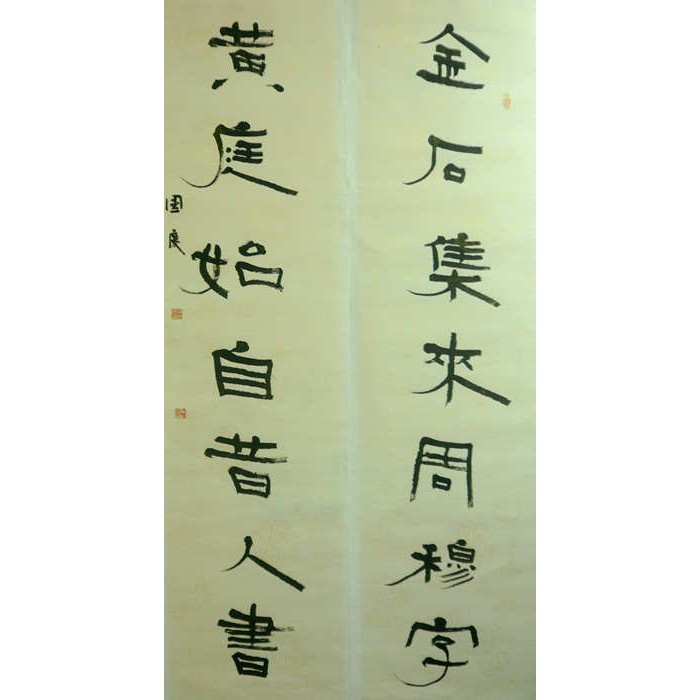 金石集來周穆字
黄庭始自昔人書
国慶